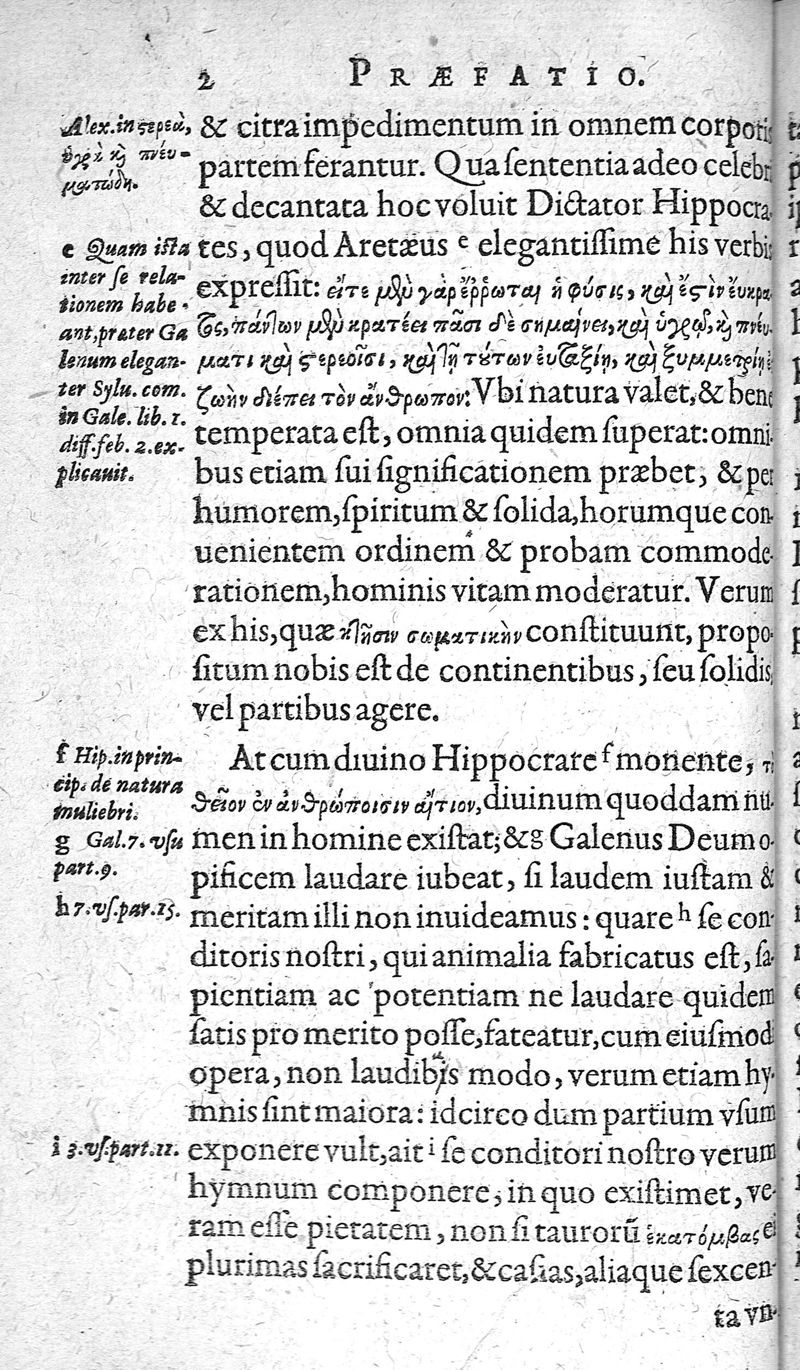 2 PRÆFATIO.
& citra impedimentum in omnem corporis
partem ferantur. Qua ſententia adeo celebri
& decantata hoc voluit Dictator Hippocra-
tes, quod Aretæus e elegantiſſimè his verbis
expreſſit: εἴτε μὲν γὰρ ἔῤῥωται ἡ φύσις, καὶ ἔστιν ἔυκρα-
τος, πάντων μὲν κρατέει πᾶσι δὲ σημαίνει, καὶ ὑγρῷ, κ πνέυ-
ματι καὶ στερεοῖσι, καὶ τῇ τȣ́των ἐυταξίῃ, καὶ ξυμμετρίῃ
ζωὴν διέπει τὸν ἄνθρωπον: Vbi natura valet, & bene
temperata eſt, omnia quidem ſuperat: omni-
bus etiam ſui ſignificationem præbet, & per
humorem, ſpiritum & ſolida, horumque con-
uenientem ordinem & probam commode-
rationem, hominis vitam moderatur. Verum
ex his, quæ κτῆσιν σωματικὴν conſtituunt, propo-
ſitum nobis eſt de continentibus, ſeu ſolidis,
vel partibus agere.
At cum diuino Hippocrate f monente, τὶ
θεῖον ἐν ἀνθρώποισιν αἴτιον, diuinum quoddam nu-
men in homine exiſtat; & g Galenus Deum o-
pificem laudare iubeat, ſi laudem iuſtam &
meritam illi non inuideamus: quare h ſe con-
ditoris noſtri, qui animalia fabricatus eſt, ſa-
pientiam ac potentiam ne laudare quidem
ſatis pro merito poſſe, fateatur, cum eiuſmodi
opera, non laudibus modo, verum etiam hy-
mnis ſint maiora: idcirco dum partium vſum
exponere vult, ait i ſe conditori noſtro verum
hymnum componere, in quo exiſtimet, ve-
ram eſſe pietatem, non ſi taurorū ἑκατόμβας ei
plurimas ſacrificaret, & caſias, aliaque ſexcen-
ta vn-
Alex. in στερεὰ,
ὑγρὰ κ πνευ-
ματώδη.
e Quam iſta
inter ſe rela-
tionem habe-
ant, præter Ga
lenum elegan-
ter Sylu. com.
in Gale. lib. 1.
diff. feb. 2. ex-
plicauit.
f Hip. in prin-
cip. de natura
muliebri.
g Gal. 7. vſu
part. 9.
h 7. vſ. par. 15.
i 3. vſ. part. 11.